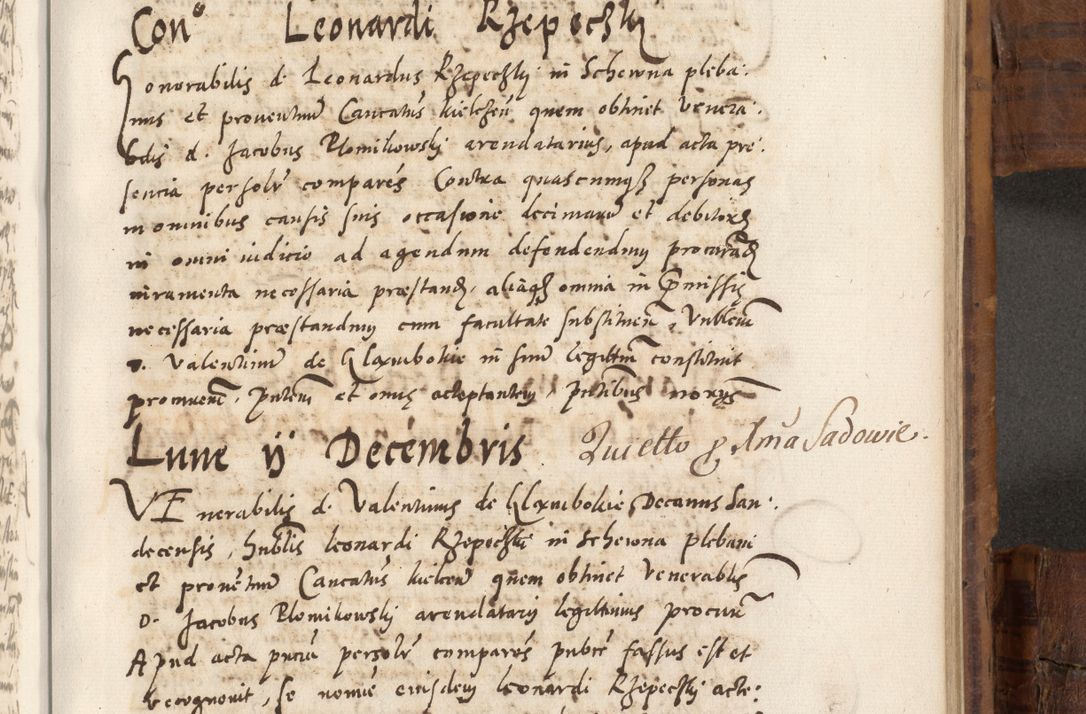 Con⁰ Leonardi Rzepeczky
Honorabilis d. Leonardus Rzepeczky in Schewna pleba:
nus et proventuũ Cancatus kielczeñ quem obtinet Venera:
bilis d. Jacobus Plomikowsky arendatarius, apud acta pre:
sencia persolr comparẽs Contra quascumq personas
in omnibus causis suis occasione decimarũ et debitorũ
in omni iudicio ad agendum defendendum
iuramenta necessaria præstand, aliaq omnia in præmissis
necessaria præstandum cum facultate substituẽñ,
D. Valentinũ de Klxmbokie in suũ legittim constituit
procurem, pñtem et onus acceptantem, pñtibus
Lune ij Decembris Quietto p Anã Sadowie.
VEnerabilis d. Valentinus de Klxmbokie Decanus San:
decensis, honblis leonardi Rzepeczki in Schewna plebani
et provẽtuũ Cancatus kielceñ quem obtinet Venerablis
D. Jacobus Plomikowsky arendatarij legittimus procurr
Apud acta pñcia persolr comparẽs publcẽ fassus est et
recognovit, se nomie eiusdem leonardi Rzepeczky acte: